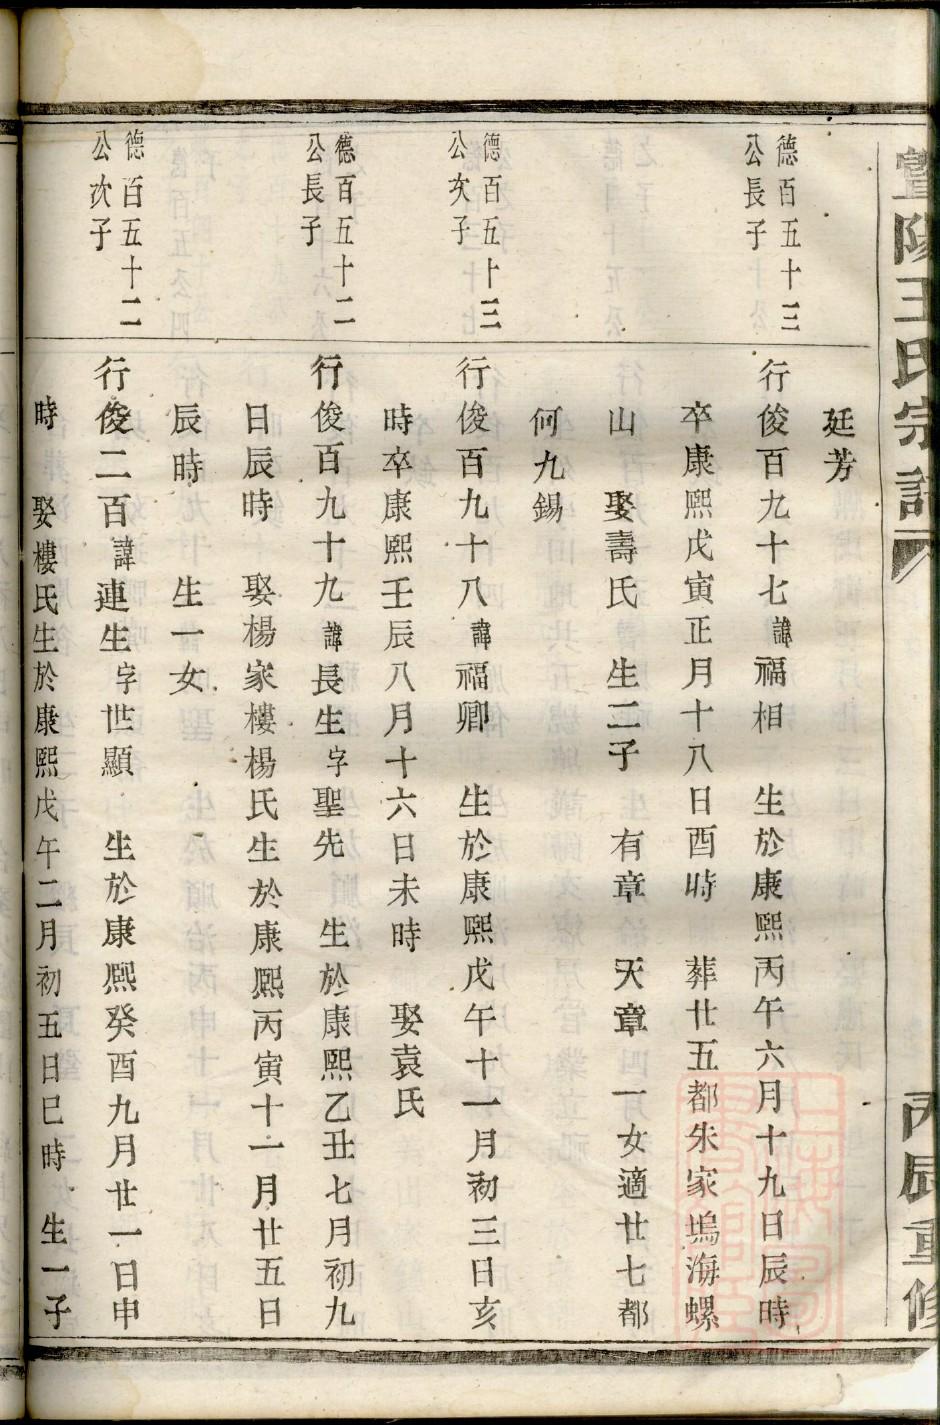 暨陽王氏宗譜
丙辰重修
廷芳
德百五十三
公長子
行俊百九十七諱福相 生於康熙丙午六月十九日辰時
卒康熙戊寅正月十八日酉時 葬廿五都朱家塢海螺
山 娶壽氏 生二子 有章 天章 一女適廿七都
何九錫
德百五十三
公次子
行俊百九十八諱福卿 生於康熙戊午十一月初三日亥
時卒康熙壬辰八月十六日未時 娶袁氏
德百五十二
公長子
行俊百九十九諱長生字聖先 生於康熙乙丑七月初九
日辰時 娶楊家樓楊氏生於康熙丙寅十一月廿五日
辰時 生一女
德百五十二
公次子
行俊二百諱連生字世顯 生於康熙癸酉九月廿一日申
時 娶樓氏生於康熙戊午二月初五日巳時 生一子